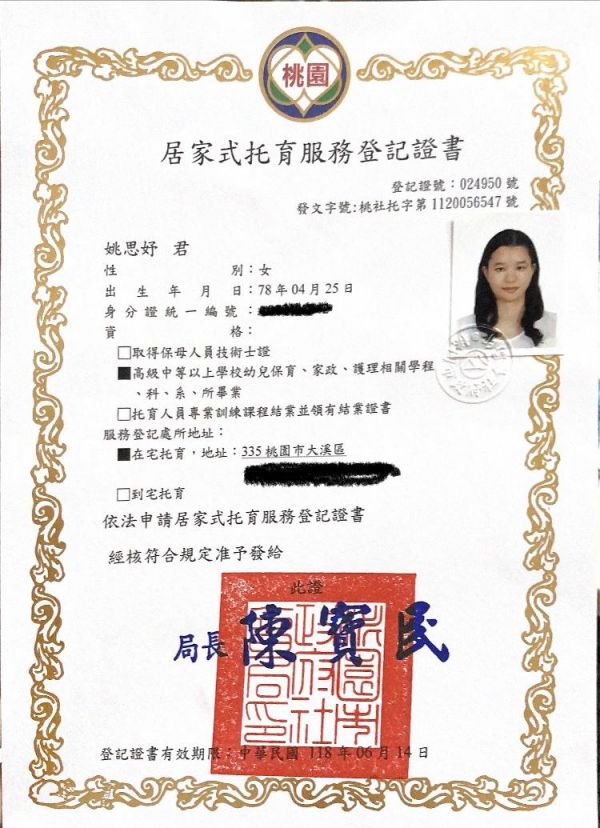 桃園
居家式托育服務登記證書
登記證號：024950 號
發文字號：桃社托字第 1120056547 號
姚思妤 君
性別：女
出生年月日：78 年 04 月 25 日
身分證統一編號：
資格：
□取得保母人員技術士證
■高級中等以上學校幼兒保育、家政、護理相關學程
、科、系、所畢業
□托育人員專業訓練課程結業並領有結業證書
服務登記處所地址：
■在宅托育，地址：335 桃園市大溪區
□到宅托育
依法申請居家式托育服務登記證書
經核符合規定准予發給
此證
局長 陳寶民
登記證書有效期限：中華民國 118 年 06 月 14 日